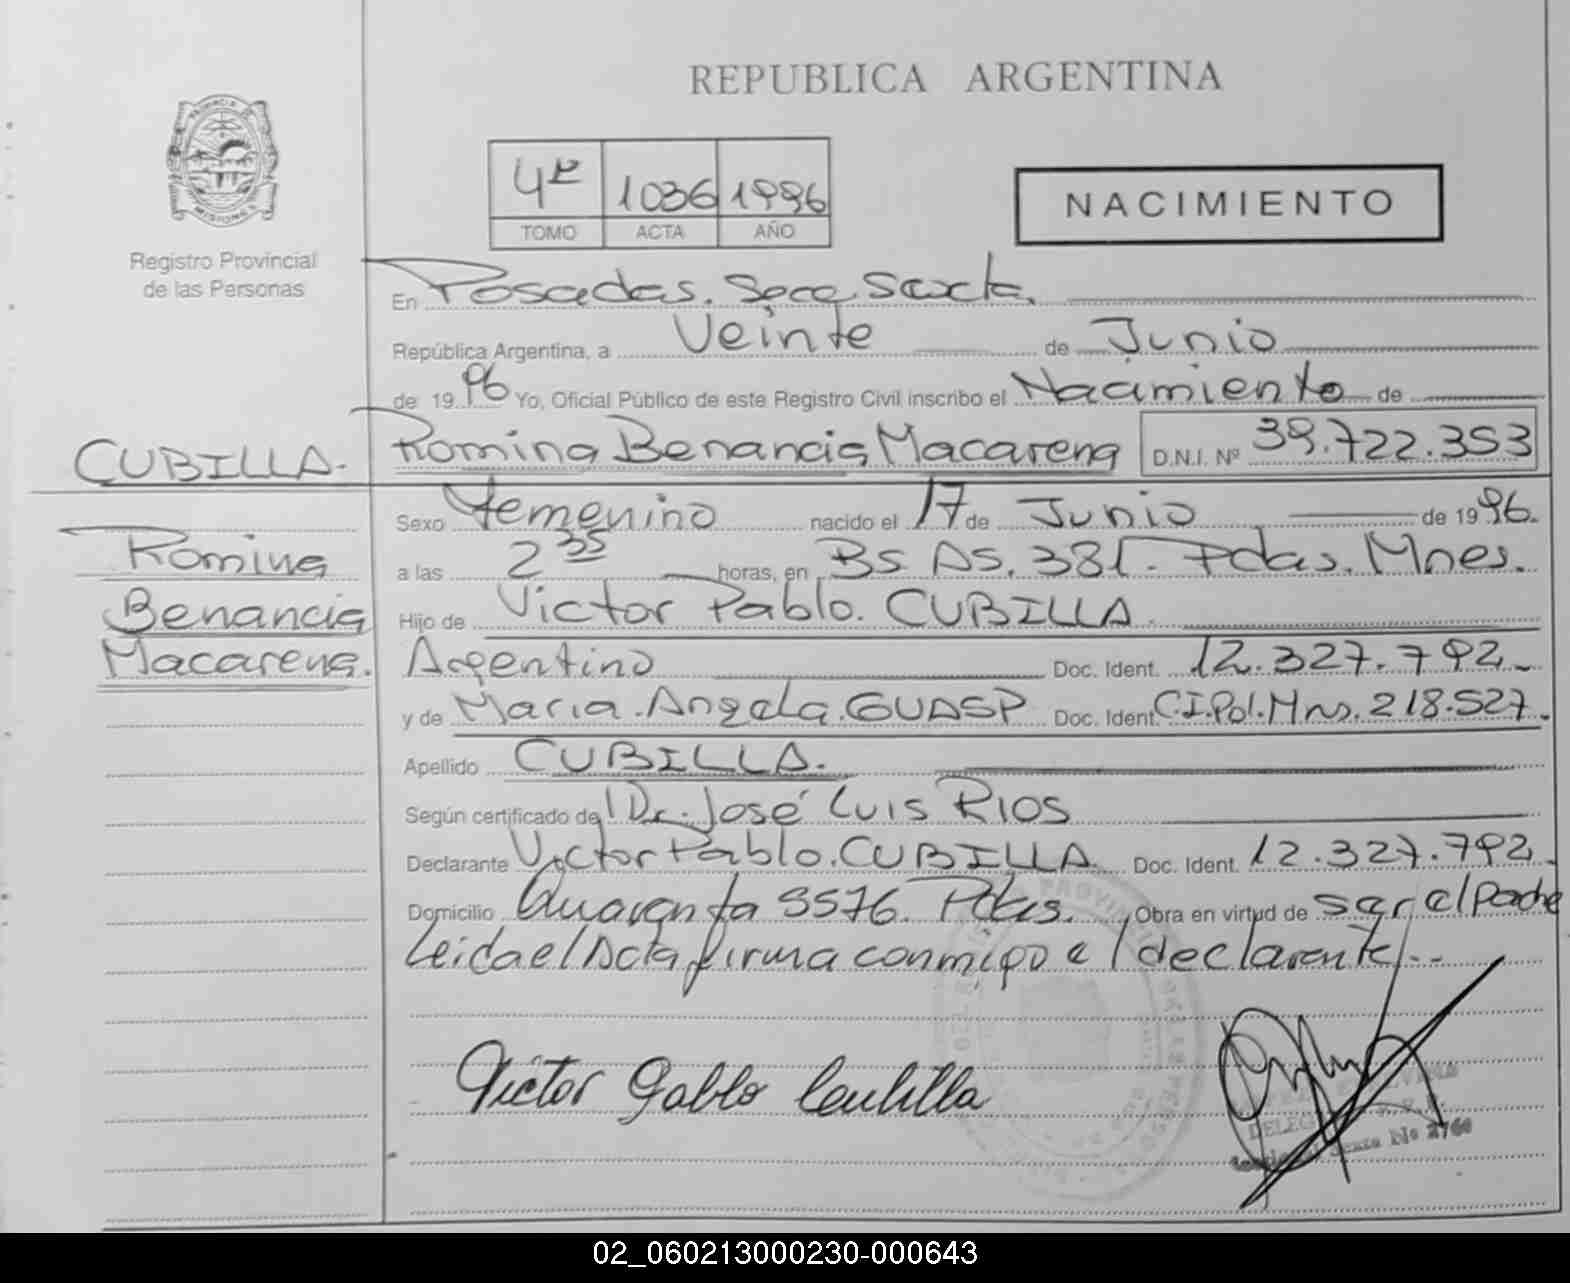 REPUBLICA ARGENTINA
PROVINCIA DE MISIONES
Registro Provincial
de las Personas
4º 1036 1996
TOMO ACTA AÑO
NACIMIENTO
En Posadas. Secc. Sexta.
República Argentina, a Veinte de Junio
de 1996 Yo, Oficial Público de este Registro Civil inscribo el Nacimiento de
CUBILLA.
Romina Benancia Macarena D.N.I. Nº 39.722.353
Romina
Benancia
Macarena.
Sexo Femenino nacido el 17 de Junio de 1996.
a las 2 35 horas, en Bs As. 381. Pdas. Mnes.
Hijo de Victor Pablo. CUBILLA
Argentino Doc. Ident. 12.327.792
y de Maria Angela GUASP Doc. Ident. C.I.Pol.Mns. 218.527.
Apellido CUBILLA.
Según certificado de Dr. José Luis RIOS
Declarante Victor Pablo. CUBILLA Doc. Ident. 12.327.792.
Domicilio 5576. Pdas. Obra en virtud de ser el Padre
Leida el Acta firma conmigo el declarante.--
Victor Pablo Cubilla
DELEG
Sexta Nº 2760
02_060213000230-000643